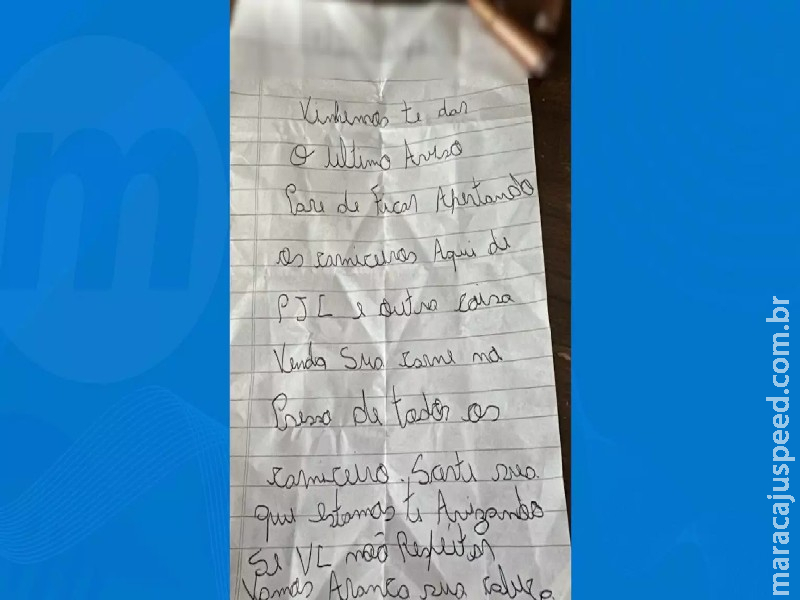 Vinhemos te dar
O ultimo Avizo
Pare de Ficar Apertando
os carniceiros Aqui de
PJC e outra coiza
Venda Sua carne no
Presso de todos os
carniceiro. Sorte sua
que estamos te Avizando
Se VC não Respeitar
Vamos Aranca sua cabeza
maracajuspeed.com.br
m